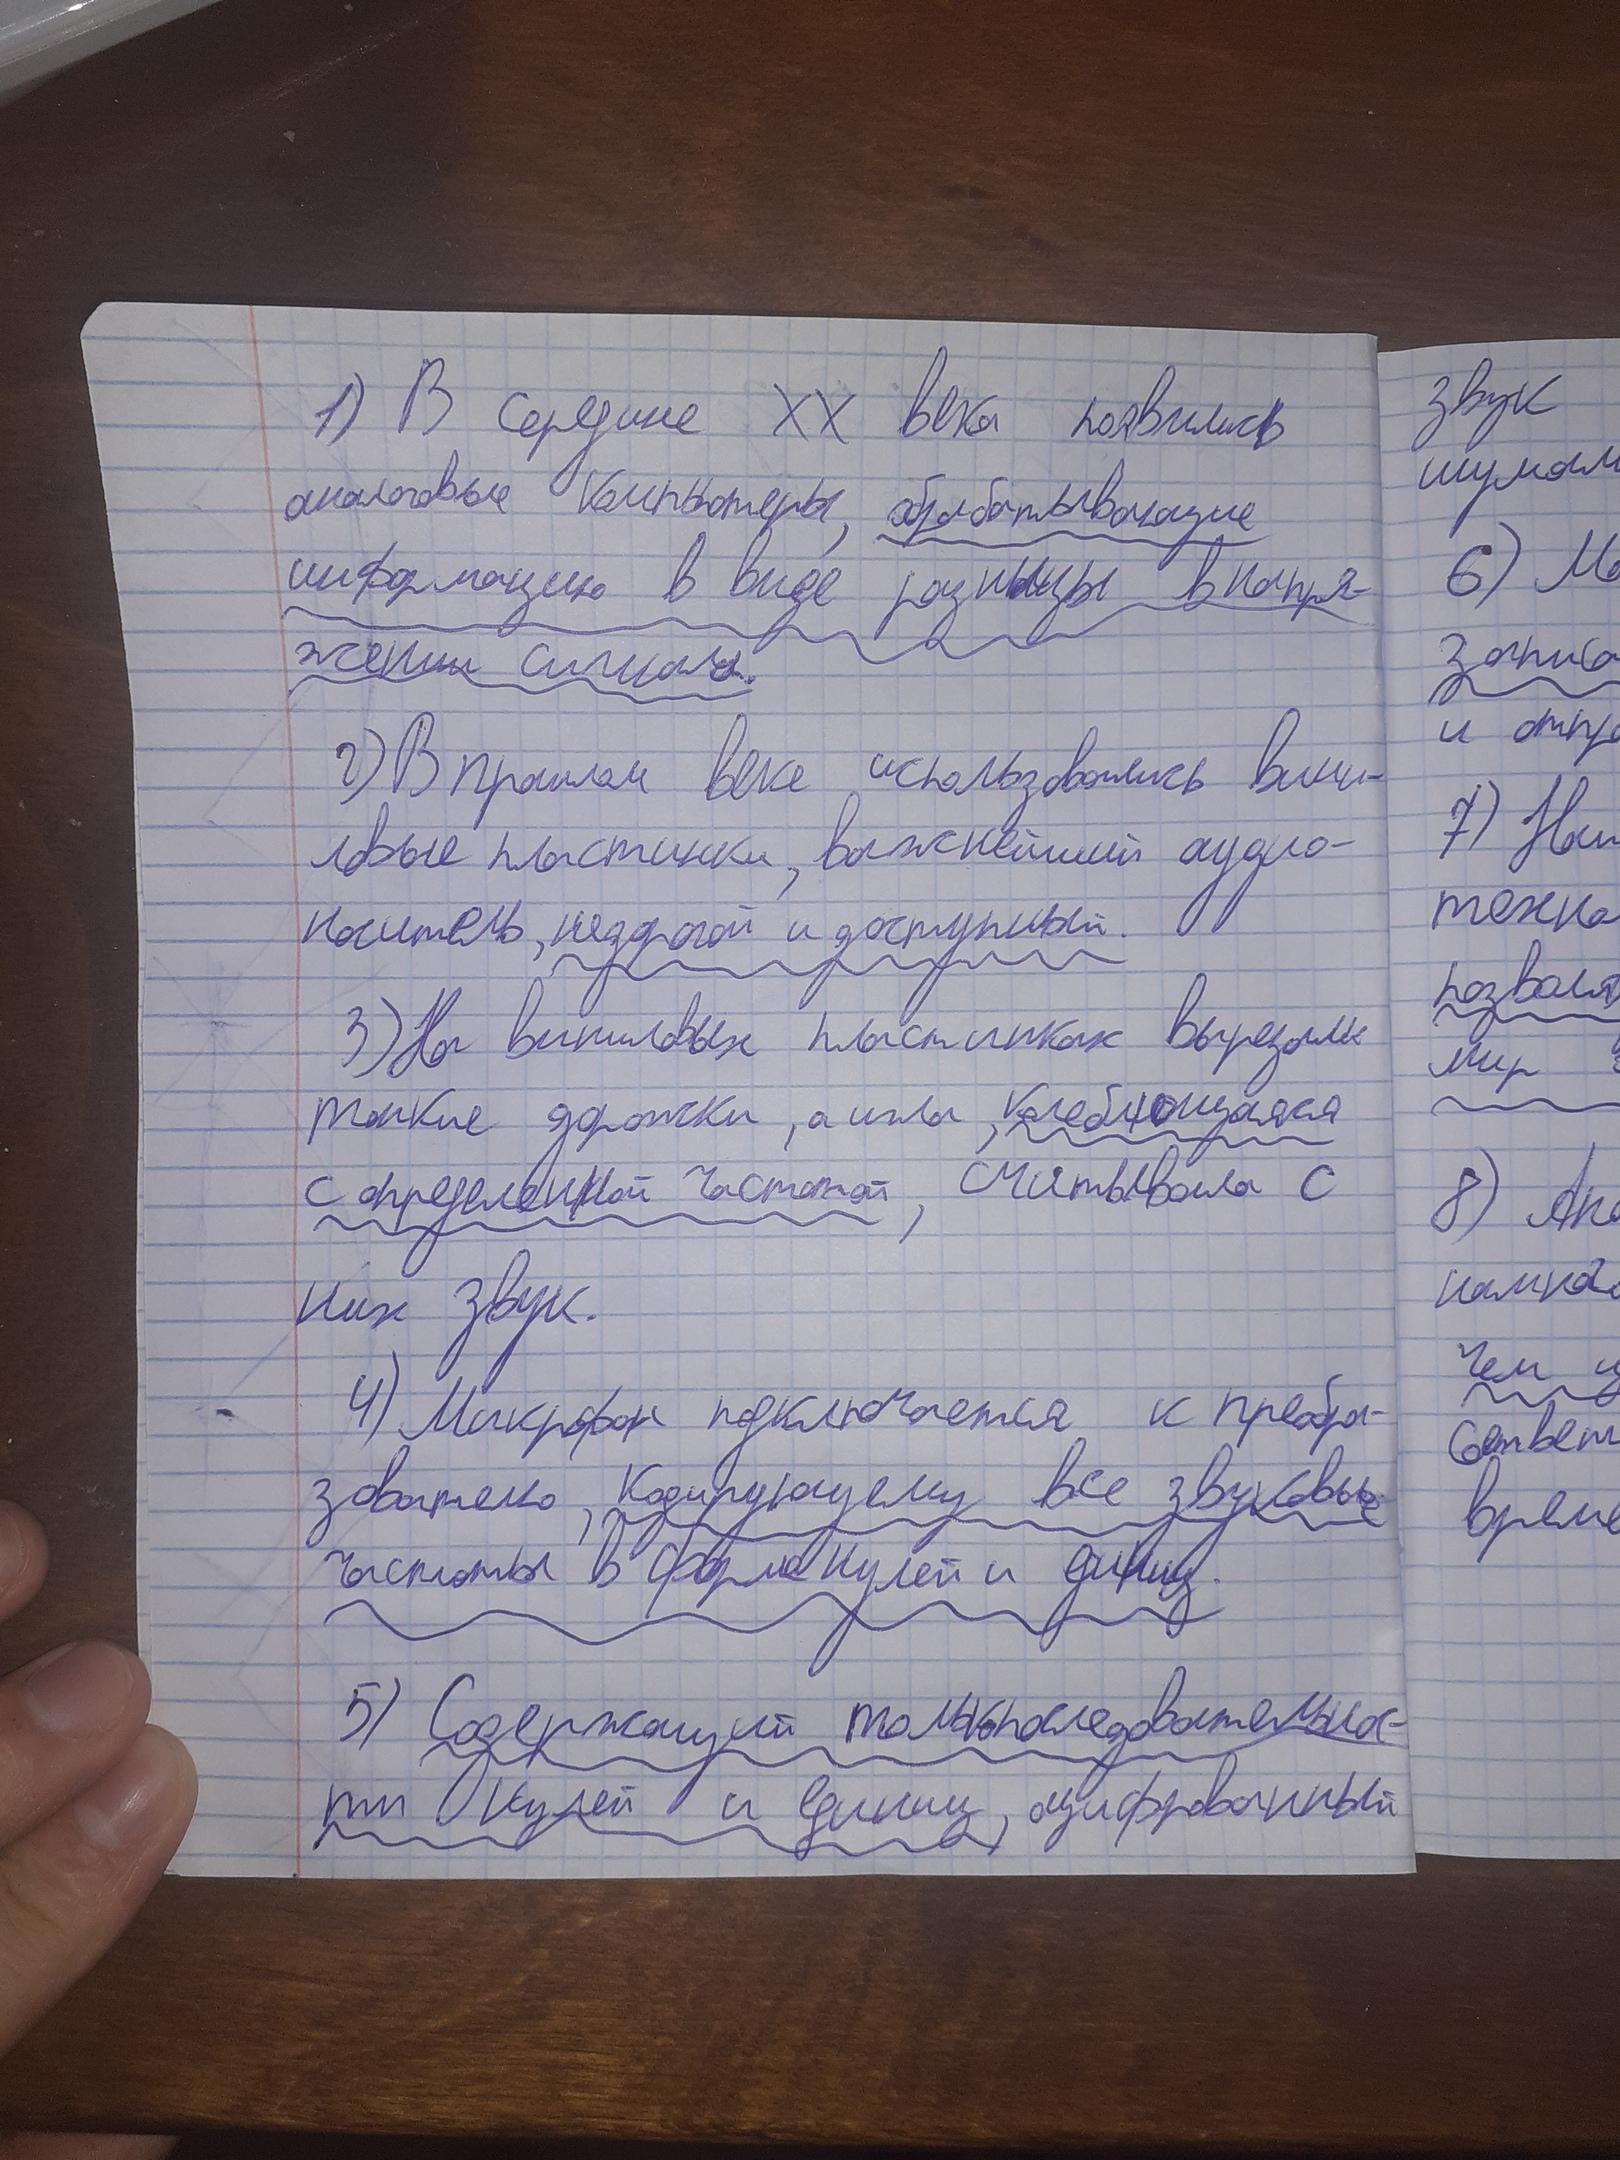 1) В середине XX века появились
аналоговые компьютеры, обрабатывающие
информацию в виде разницы в напря-
жении сигнала.
2) В прошлом веке использовались вини-
ловые пластинки, важнейший аудио-
носитель, недорогой и доступный.
3) На виниловых пластинках вырезали
тонкие дорожки, а игла, колеблющаяся
с определенной частотой, считывала с
них звук.
4) Микрофон подключается к преобра-
зователю, кодирующему все звуковые
частоты в форме нулей и единиц.
5) Содержащий только последовательнос-
ти нулей и единиц, оцифрованный
звук
шумам
6) Мо
записа
и отпра
7) Наш
техно
позволя
мир
8) Ана
намного
чем ц
соответ
време